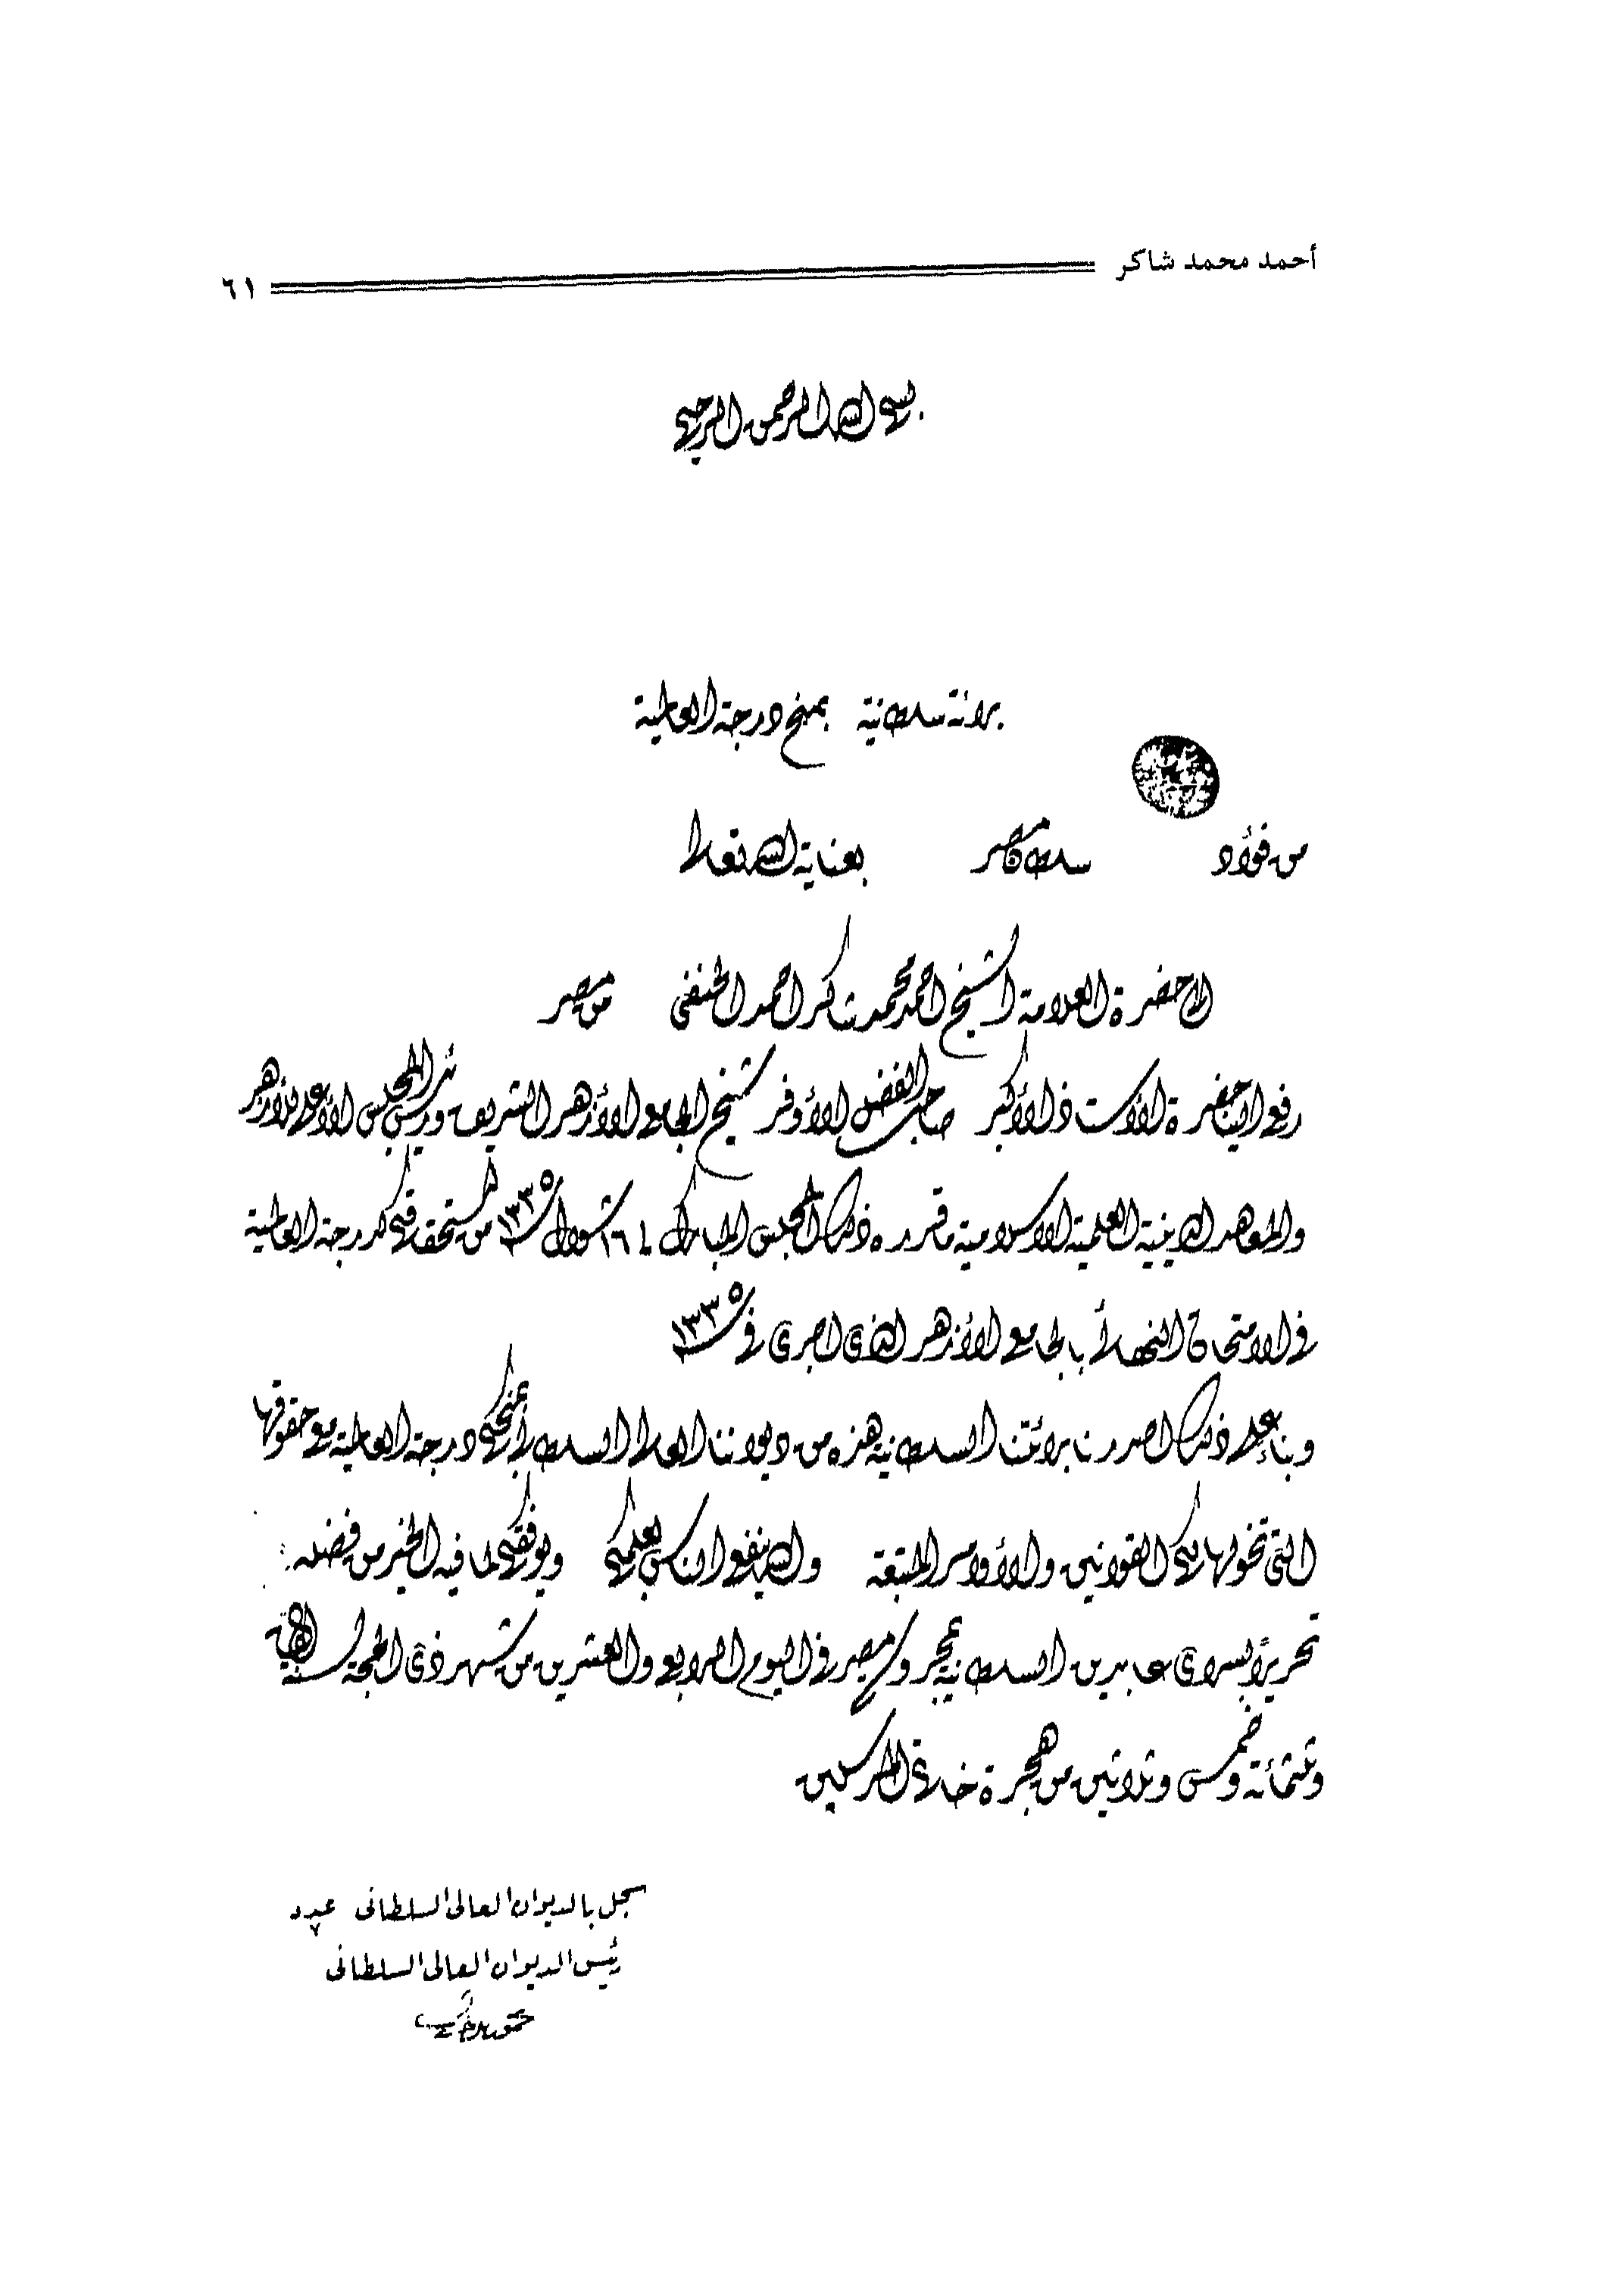 أحمد محمد شاكر
٦١
بسم الله الرحمن الرحيم
براءة سلطانية بمنح درجة العالمية
من فؤاد سلطان مصر بعناية الله تعالى
الى حضرة العلامة الشيخ احمد محمد شاكر احمد الحنفى من مصر
رفع الينا حضرة الأستاذ الأكبر صاحب الفضل الأوفر شيخ الجامع الأزهر الشريف ورئيس المجلس الأعلى للأزهر
والمعاهد الدينية العلمية الاسلامية ما قرره ذلك المجلس المبارك فى ١٦ شوال سنة ١٣٣٥ من استحقاقكم درجة العالمية
فى الامتحان النهائى بالجامع الأزهر الذى اجرى فى سنة ١٣٣٥
وبناء على ذلك اصدرنا براءتنا السلطانية هذه من ديواننا العالى السلطانى بمنحكم درجة العالمية مع حقوقها
التى تخولها لكم القوانين والأوامر المتبعة والله ينفع الناس بعلمكم ويوفقكم لما فيه الخير من فضله
تحريرا بسراى عابدين السلطانية بمحروسة مصر فى اليوم الرابع والعشرين من شهر ذى الحجة لسنة الف
وثلثمائة وخمس وثلاثين من هجرة خاتم المرسلين
سجل بالديوان العالى السلطانى عدد ٧
رئيس الديوان العالى السلطانى